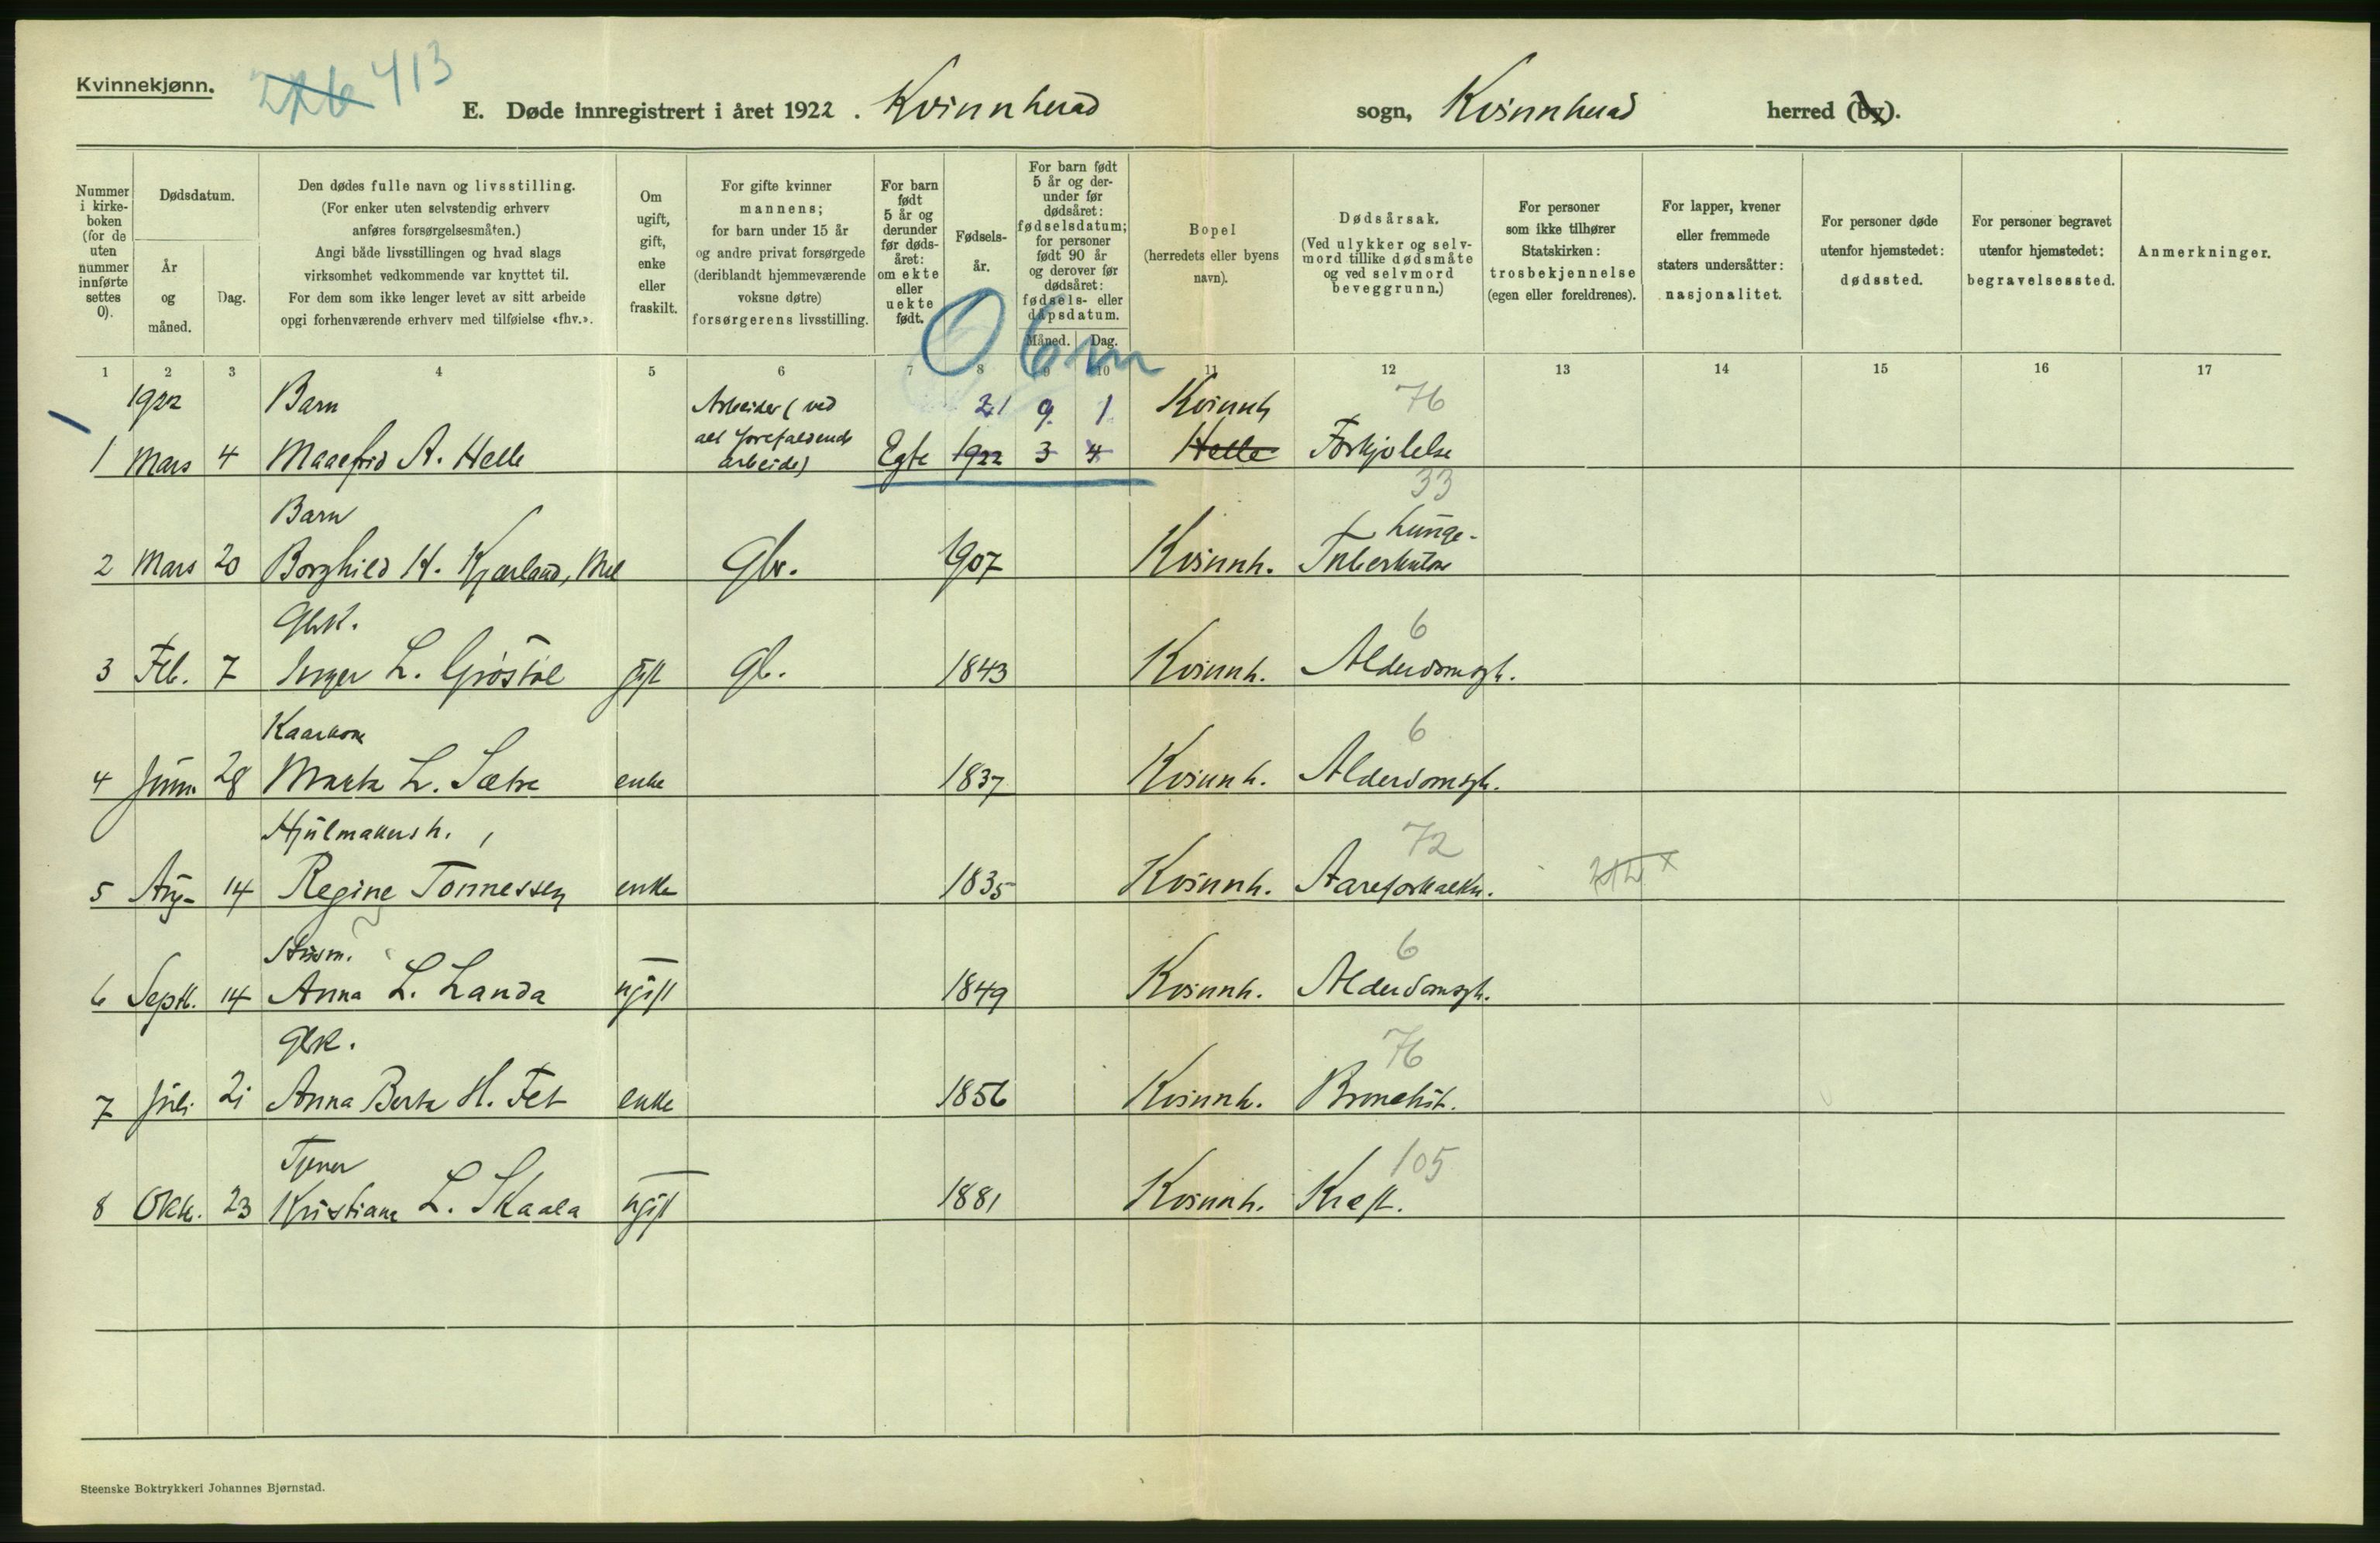 Kvinnekjønn.
413
E. Døde innregistrert i året 1922. Kvinnherad sogn, Kvinnherad herred (by).
Nummer i kirke-boken (for de uten nummer innførte settes 0).
Dødsdatum.
År og måned.
Dag.
Den dødes fulle navn og livsstilling.
(For enker uten selvstendig erhverv anføres forsørgelsesmåten.)
Angi både livsstillingen og hvad slags virksomhet vedkommende var knyttet til.
For dem som ikke lenger levet av sitt arbeide opgi forhenværende erhverv med tilføielse «fhv.».
Om ugift, gift, enke eller fraskilt.
For gifte kvinner mannens; for barn under 15 år og andre privat forsørgede (deriblandt hjemmeværende voksne døtre) forsørgerens livsstilling.
For barn født 5 år og derunder før døds-året: om ekte eller uekte født.
Fødsels-år.
For barn født 5 år og der-under før dødsåret: fødselsdatum; for personer født 90 år og derover før dødsåret: fødsels- eller dåpsdatum.
Måned. Dag.
Bopel (herredets eller byens navn).
Dødsårsak.
(Ved ulykker og selv-mord tillike dødsmåte og ved selvmord beveggrunn.)
For personer som ikke tilhører Statskirken: trosbekjennelse (egen eller foreldrenes).
For lapper, kvener eller fremmede staters undersåtter: nasjonalitet.
For personer døde utenfor hjemstedet: dødssted.
For personer begravet utenfor hjemstedet: begravelsessted.
Anmerkninger.
0 6 m
1 2 3 4 5 6 7 8 9 10 11 12 13 14 15 16 17
1922 Barn Arbeider (ved 21 9 1 Kvinnh 76
1 Mars 4 A. Helle alt forefaldende arbeide) Egte 1922 3 4 Helle Forkjølelse
Barn 33
Lunge-
2 Mars 20 Borghild H. Kjærland, Mel Gbr. 1907 Kvinnh. Tuberkulose
Gbk. 6
3 Feb. 7 Inger L. gift Gb. 1843 Kvinnh. Alderdomssh.
Kaarkone 6
4 28 Marta L. Sætre enke 1837 Kvinnh. Alderdomssh.
Hjulmakersh. 72
5 Aug- 14 Regine Tønnessen enke 1835 Kvinnh. Aareforkalkn.
6
6 Septb. 14 Anna L. Landa ugift 1849 Kvinnh. Alderdomssh.
Gbk. 76
7 Juli 21 Anna Berta H. Fet enke 1856 Kvinnh. Bronchit.
Tjener 105
8 Okt. 23 Kristiane L. Skaala ugift 1881 Kvinnh. Kræft.
Steenske Boktrykkeri Johannes Bjørnstad.